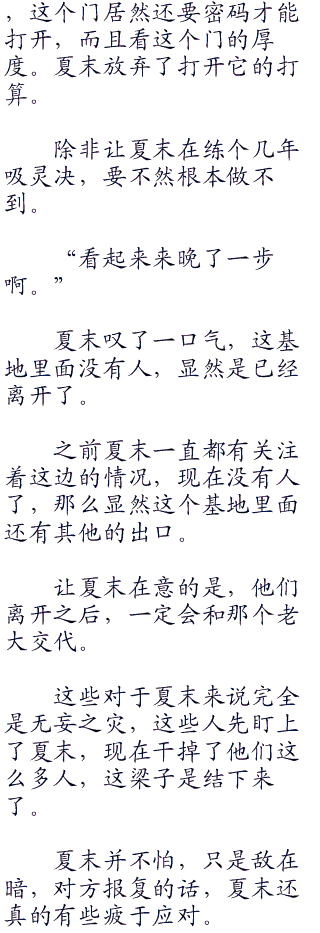 ，这个门居然还要密码才能
打开，而且看这个门的厚
度。夏末放弃了打开它的打
算。
除非让夏末在练个几年
吸灵决，要不然根本做不
到。
“看起来来晚了一步
啊。”
夏末叹了一口气，这基
地里面没有人，显然是已经
离开了。
之前夏末一直都有关注
着这边的情况，现在没有人
了，那么显然这个基地里面
还有其他的出口。
让夏末在意的是，他们
离开之后，一定会和那个老
大交代。
这些对于夏末来说完全
是无妄之灾，这些人先盯上
了夏末，现在干掉了他们这
么多人，这梁子是结下来
了。
夏末并不怕，只是敌在
暗，对方报复的话，夏末还
真的有些疲于应对。